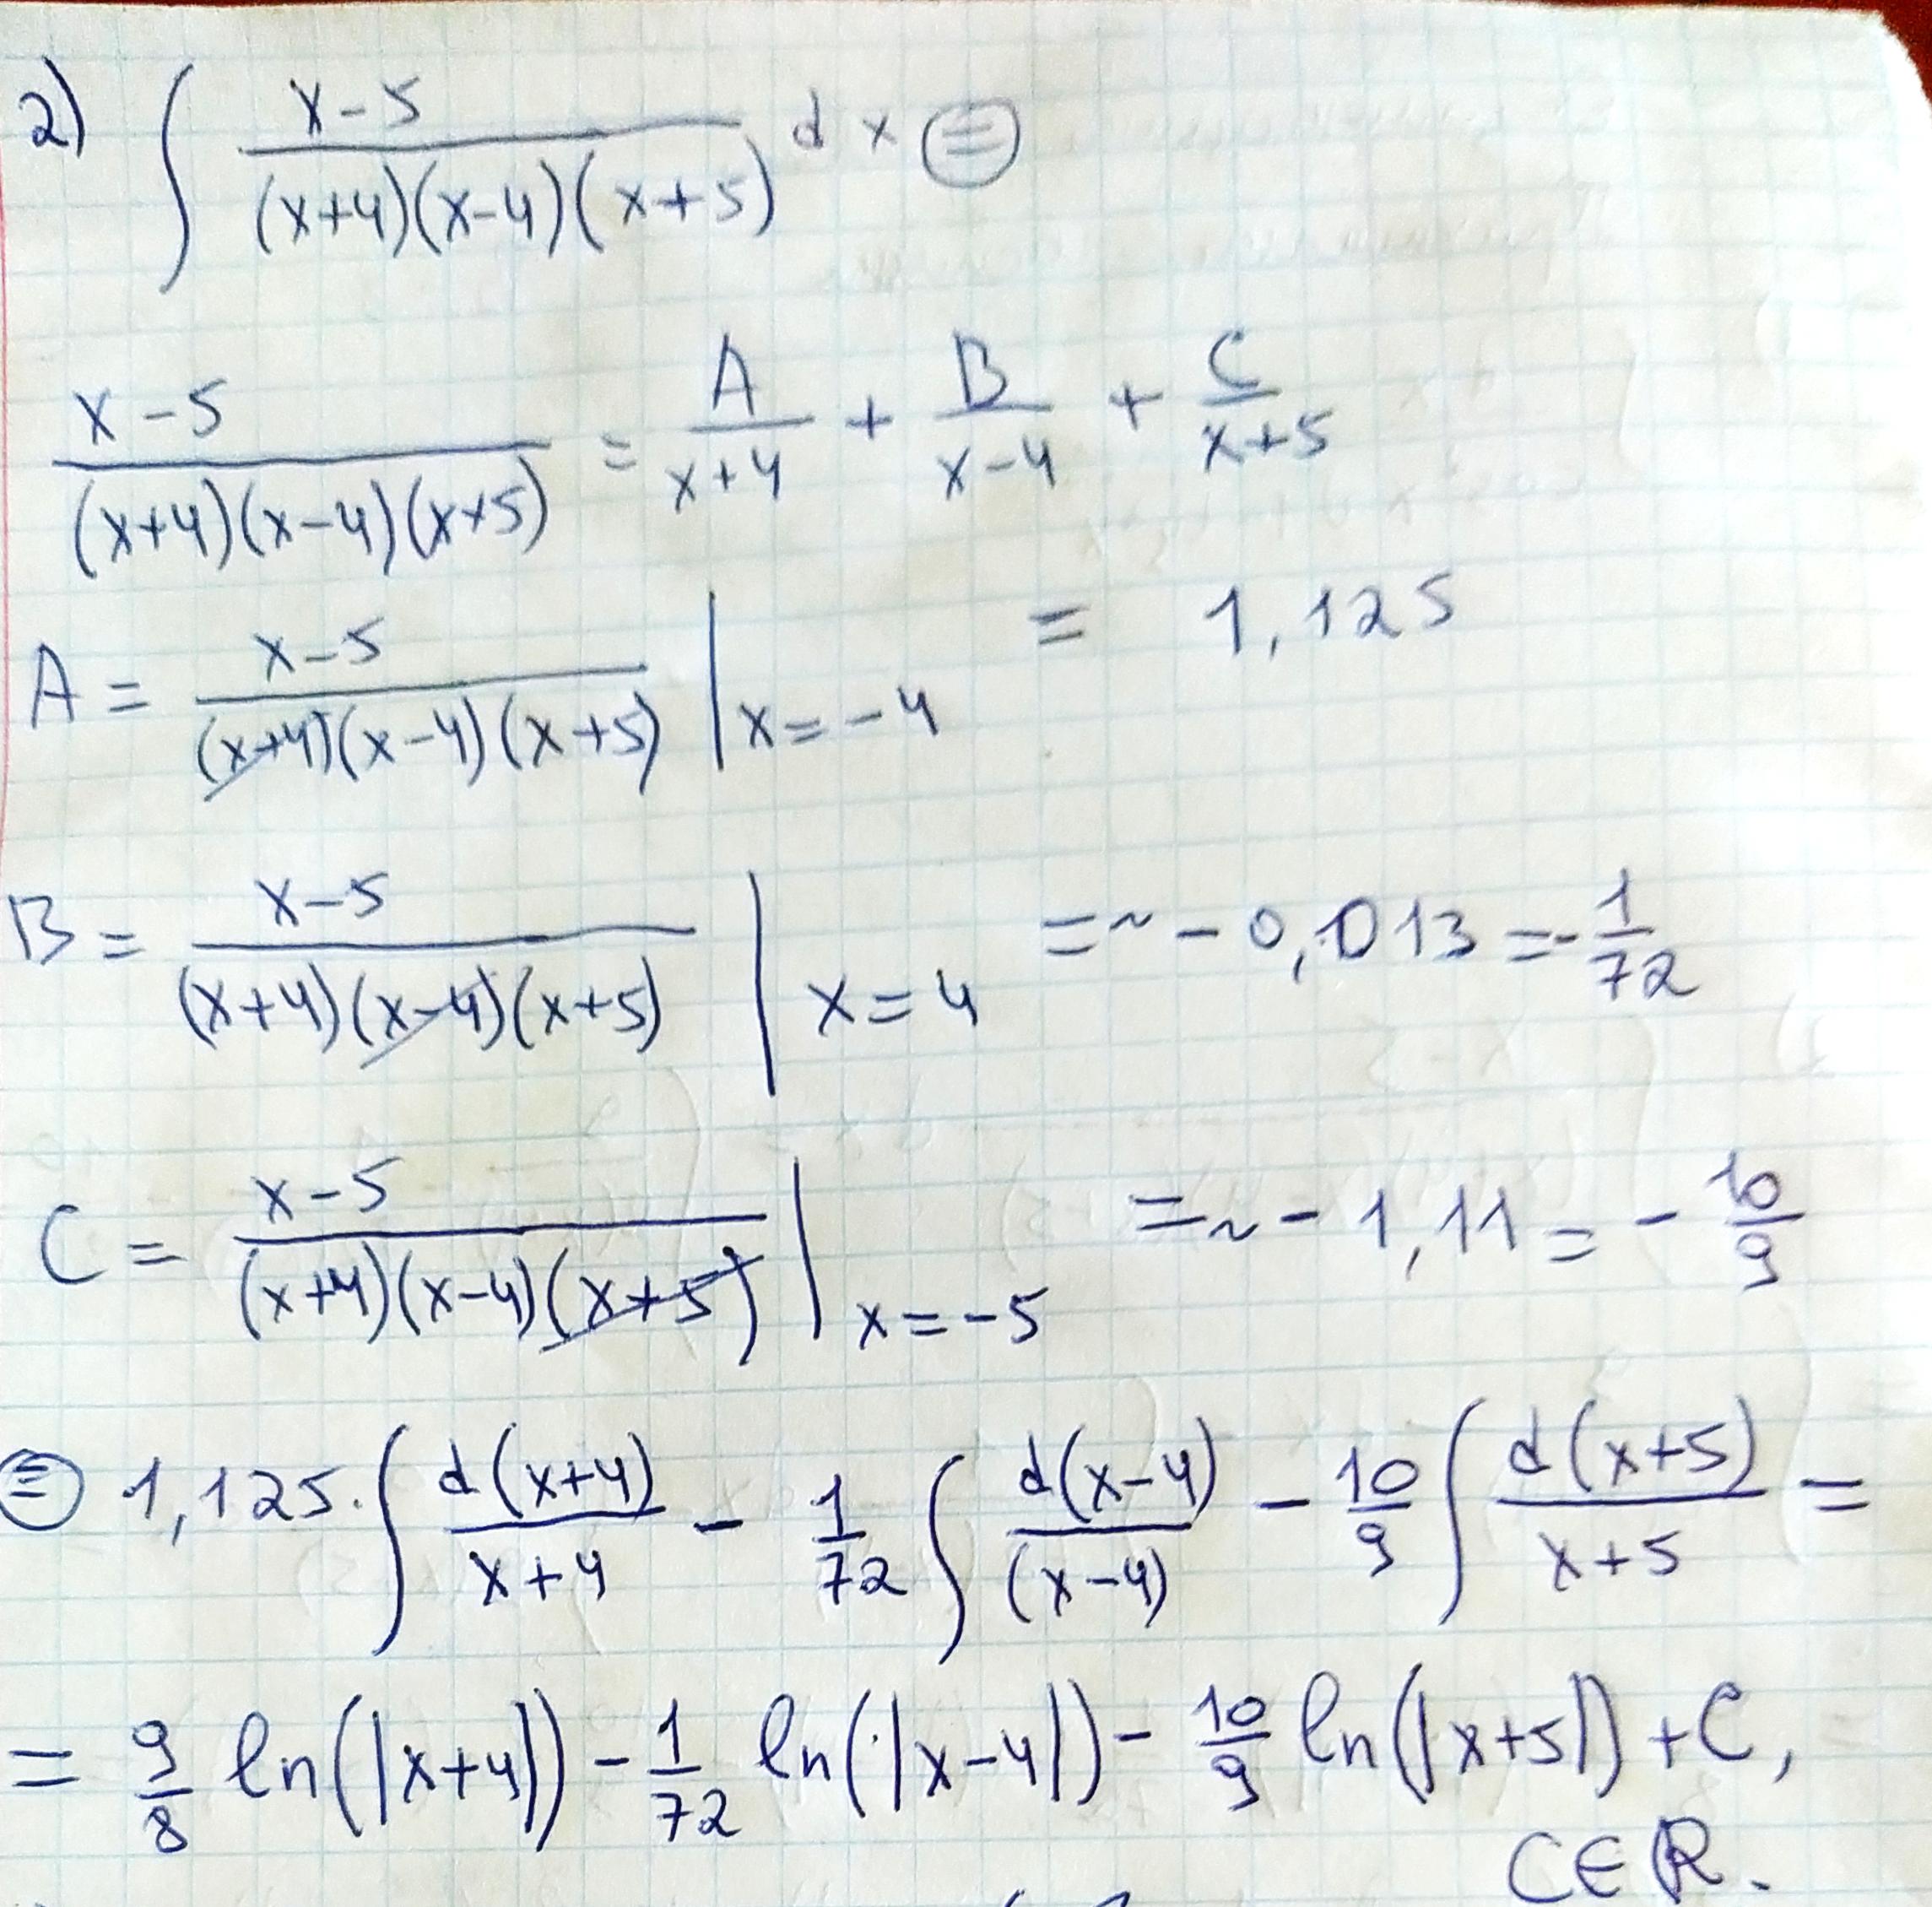 2) ∫ (x-5)/((x+4)(x-4)(x+5)) dx ⊜
(x-5)/((x+4)(x-4)(x+5)) = A/(x+4) + B/(x-4) + C/(x+5)
A = (x-5)/((x+4)(x-4)(x+5)) |x=-4 = 1,125
B = (x-5)/((x+4)(x-4)(x+5)) |x=4 =~ -0,013 = -1/72
C = (x-5)/((x+4)(x-4)(x+5)) |x=-5 =~ -1,11 = -10/9
⊜ 1,125·∫ d(x+4)/(x+4) - 1/72 ∫ d(x-4)/(x-4) - 10/9 ∫ d(x+5)/(x+5) =
= 9/8 ln(|x+4|) - 1/72 ln(|x-4|) - 10/9 ln(|x+5|) + C,
C∈R.